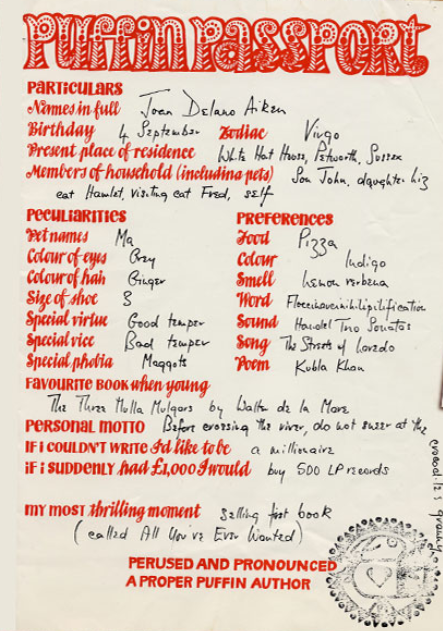 PUFFIN PASSPORT
PARTICULARS
Names in full Joan Delano Aiken
Birthday 4 September Zodiac Virgo
Present place of residence White Hart House, Petworth, Sussex
Members of household (including pets) Son John, daughter Liz
cat Hamlet, visiting cat Fred, self
PECULIARITIES
Pet names Ma
Colour of eyes Grey
Colour of hair Ginger
Size of shoe 3
Special virtue Good temper
Special vice Bad temper
Special phobia Maggots
PREFERENCES
Food Pizza
Colour Indigo
Smell Lemon verbena
Word Floccinaucinihilipilification
Sound Handel Trio Sonatas
Song The Streets of Laredo
Poem Kubla Khan
FAVOURITE BOOK when young
The Three Mulla Mulgars by Walter de la Mare
PERSONAL MOTTO Before crossing the river, do not sneer at the crocodile's grandma
IF I COULDN'T WRITE I'd like to be a millionaire
IF I SUDDENLY had £1,000 I would buy 500 LP records
MY MOST thrilling moment selling first book
(called All You've Ever Wanted)
PERUSED AND PRONOUNCED
A PROPER PUFFIN AUTHOR